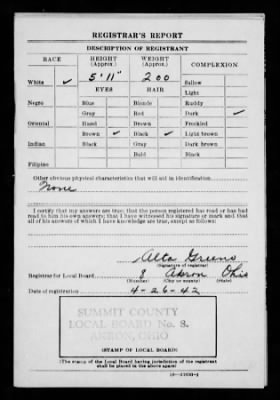 REGISTRAR'S REPORT
DESCRIPTION OF REGISTRANT
RACE HEIGHT (Approx.) WEIGHT (Approx.) COMPLEXION
White ✓ 5' 11" 200 Sallow
EYES HAIR Light
Negro Blue Blonde Ruddy
Gray Red Dark ✓
Oriental Hazel Brown Freckled
Brown ✓ Black ✓ Light brown
Indian Black Gray Dark brown
Bald Black
Filipino
Other obvious physical characteristics that will aid in identification
None
I certify that my answers are true; that the person registered has read or has had
read to him his own answers; that I have witnessed his signature or mark and that
all of his answers of which I have knowledge are true, except as follows:
Alta Greens
(Signature of registrar)
Registrar for Local Board 8 Akron Ohio
(Number) (City or county) (State)
Date of registration 4-26-42
SUMMIT COUNTY
LOCAL BOARD No. 8.
AKRON, OHIO
(STAMP OF LOCAL BOARD)
(The stamp of the Local Board having jurisdiction of the registrant
shall be placed in the above space)